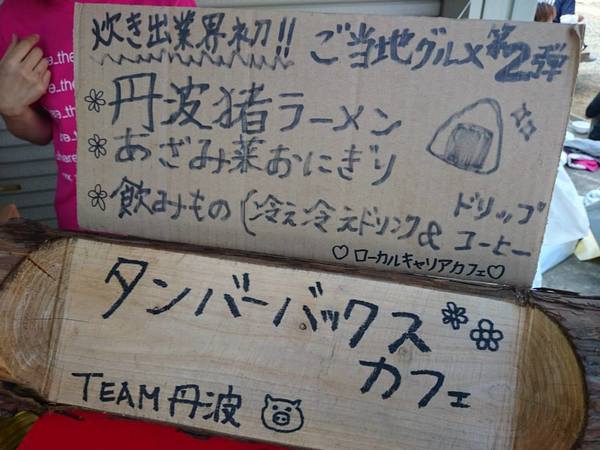 炊き出業界初!! ご当地グルメ第2弾
丹波猪ラーメン
あざみ菜おにぎり
飲みもの(冷え冷えドリンク&ドリップコーヒー
♡ローカルキャリアカフェ♡
タンバーバックス
カフェ
TEAM丹波